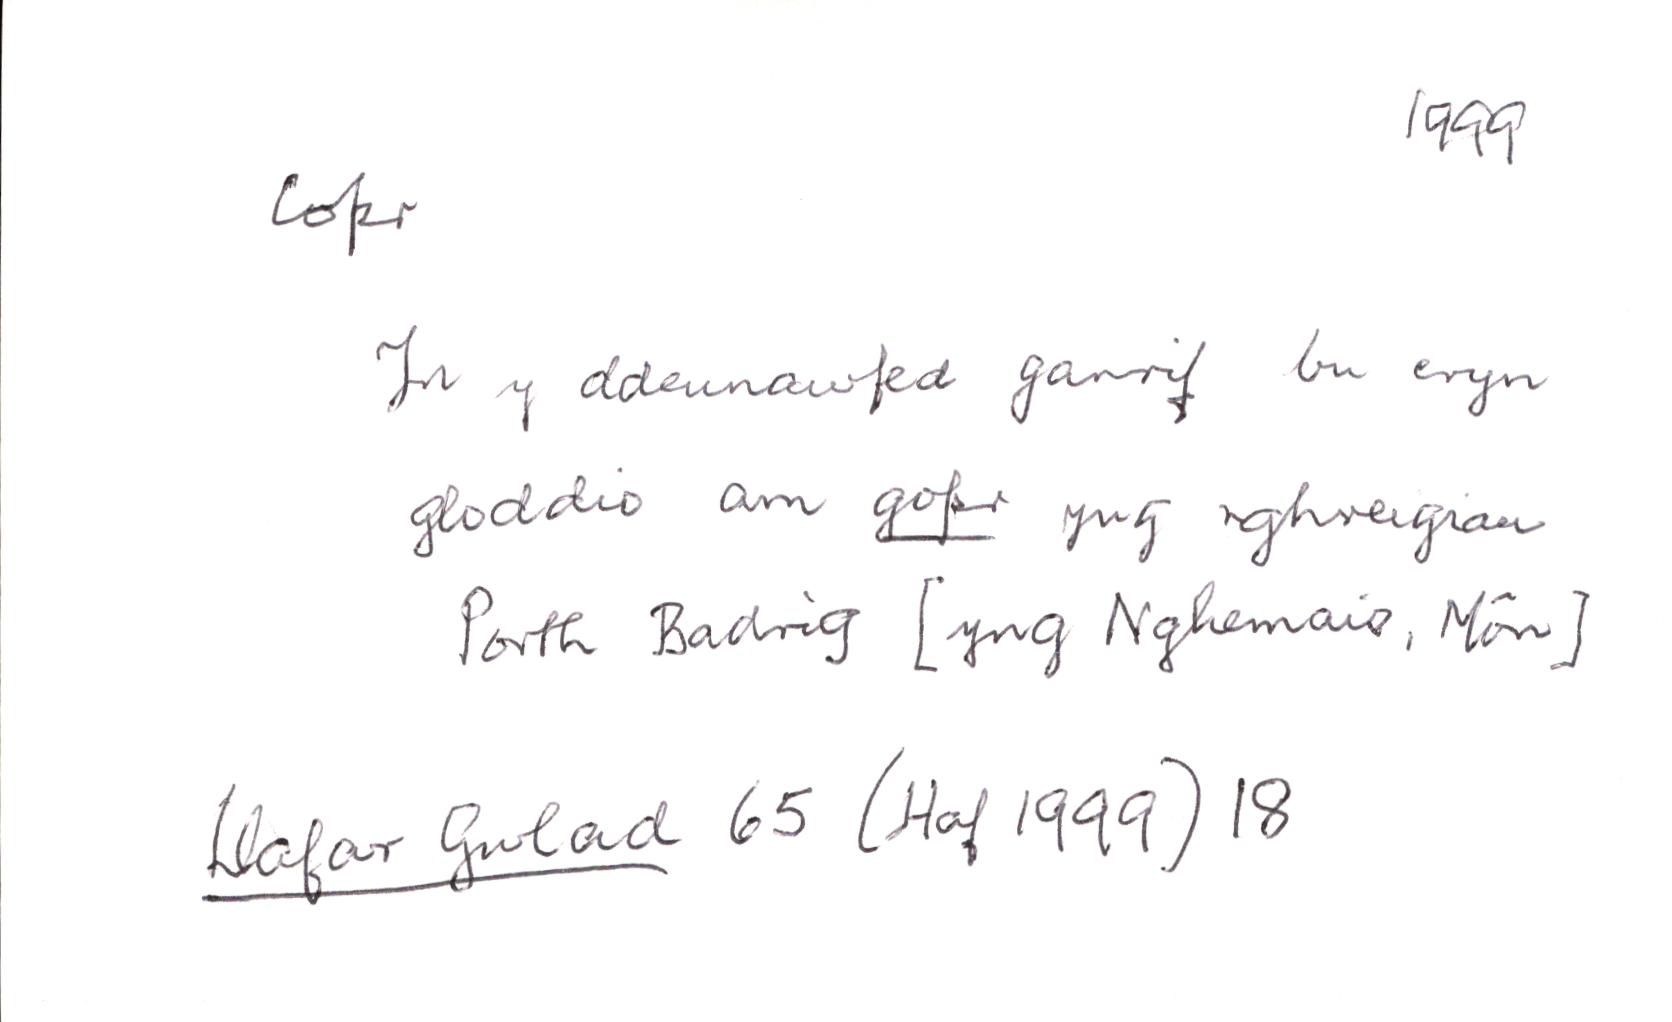 1999
Copr
Yn y ddeunawfed ganrif bu cryn
gloddio am gopr yng nghreigiau
Porth Badrig [yng Nghemais, Môn]
Llafar Gwlad 65 (Haf 1999) 18